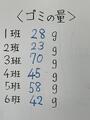 <ゴミの量>
1班 28g
2班 23g
3班 70g
4班 45g
5班 58g
6班 42g